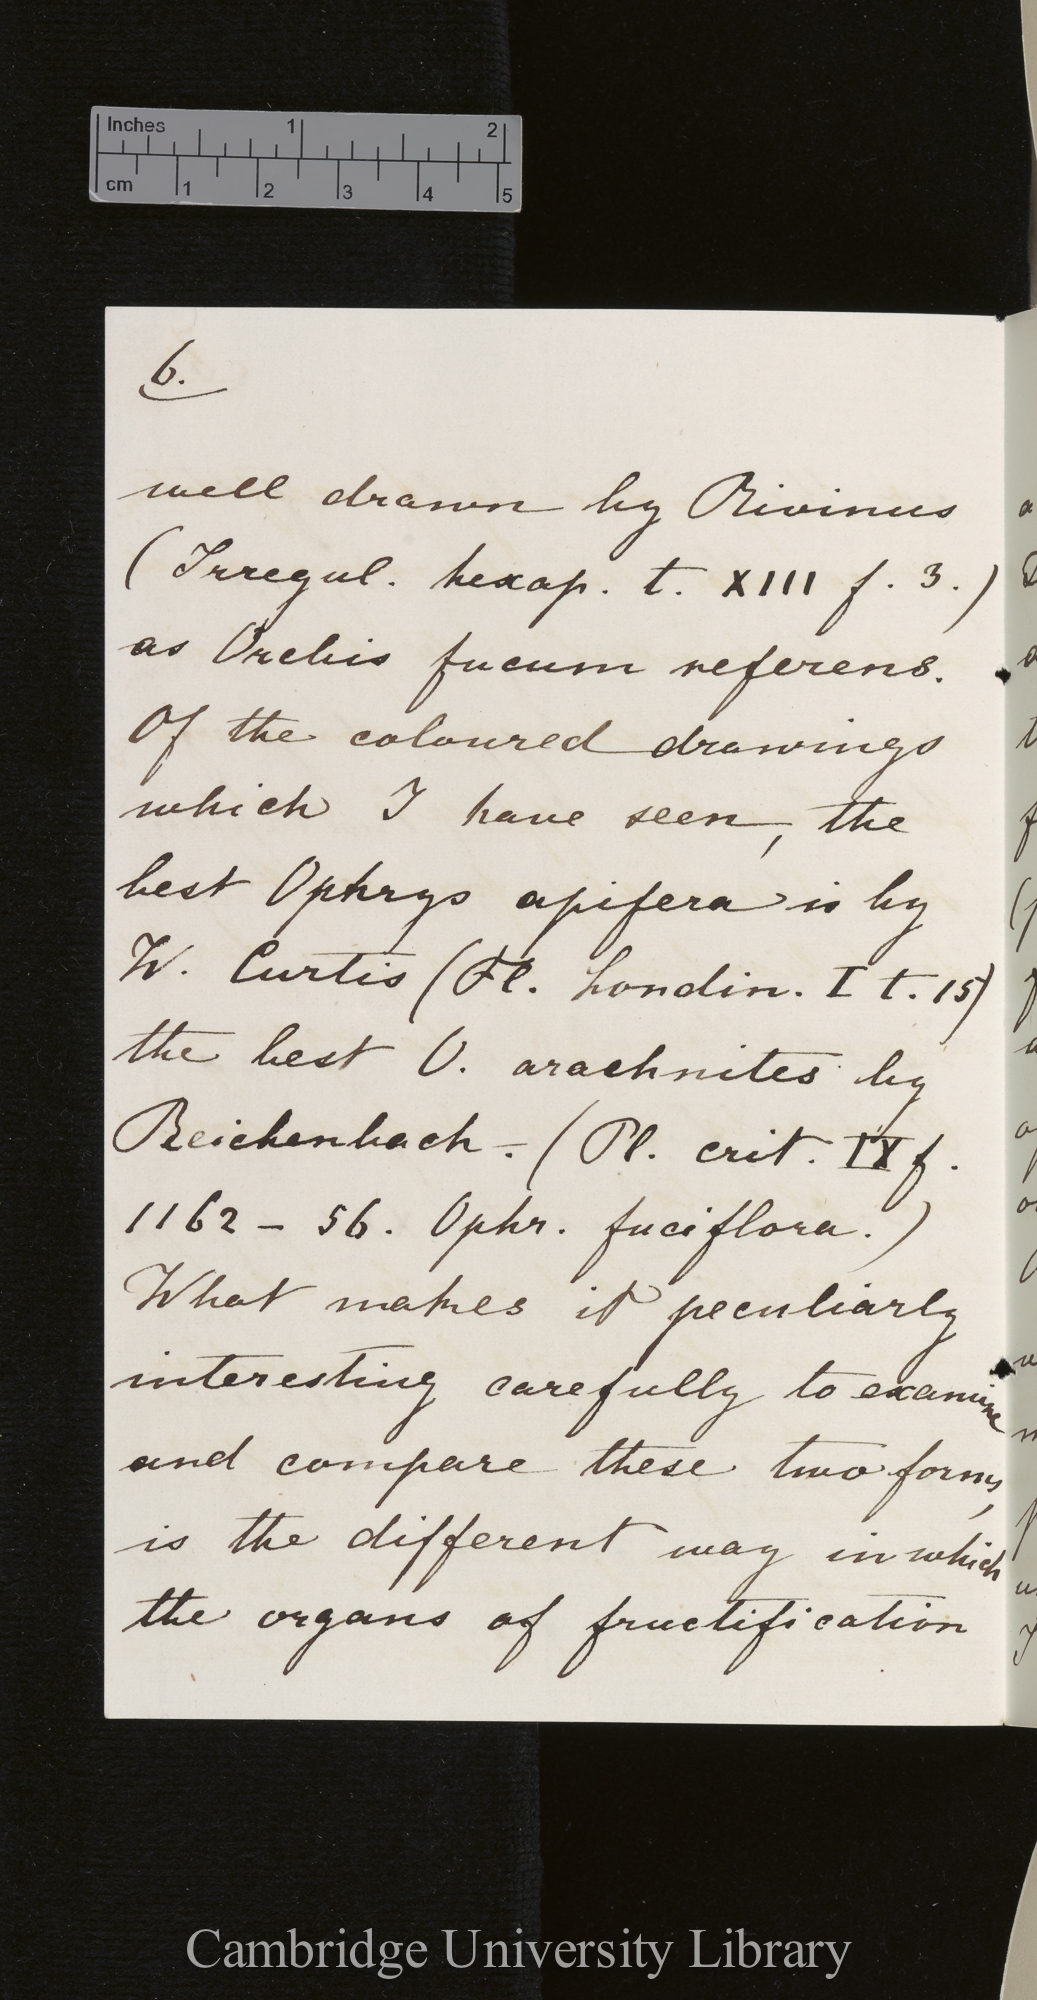 Inches 1 2
cm 1 2 3 4 5
6.
well drawn by Rivinus
(Irregul. hexap. t. XIII f. 3.)
as Orchis fucum referens.
Of the coloured drawings
which I have seen, the
best Ophrys apifera is by
W. Curtis (Fl. Londin. I t. 15)
the best O. arachnites by
Reichenbach - (Pl. crit. IX f.
1162 - 56. Ophr. fuciflora.)
What makes it peculiarly
interesting carefully to examine
and compare these two forms,
is the different way in which
the organs of fructification
Cambridge University Library